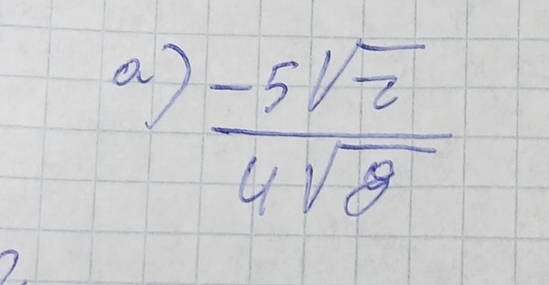 a) -5√2
4√8